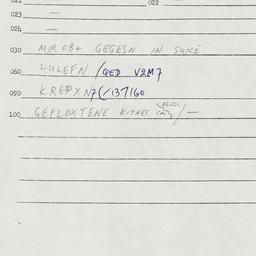 022
023 —
024 —
030 MIROB+ GEGESN IN SUKE
060 LULEFN /QED V2M7
090 KREPXN7(/137/60
100 GEFLOXTENE KITHES /—